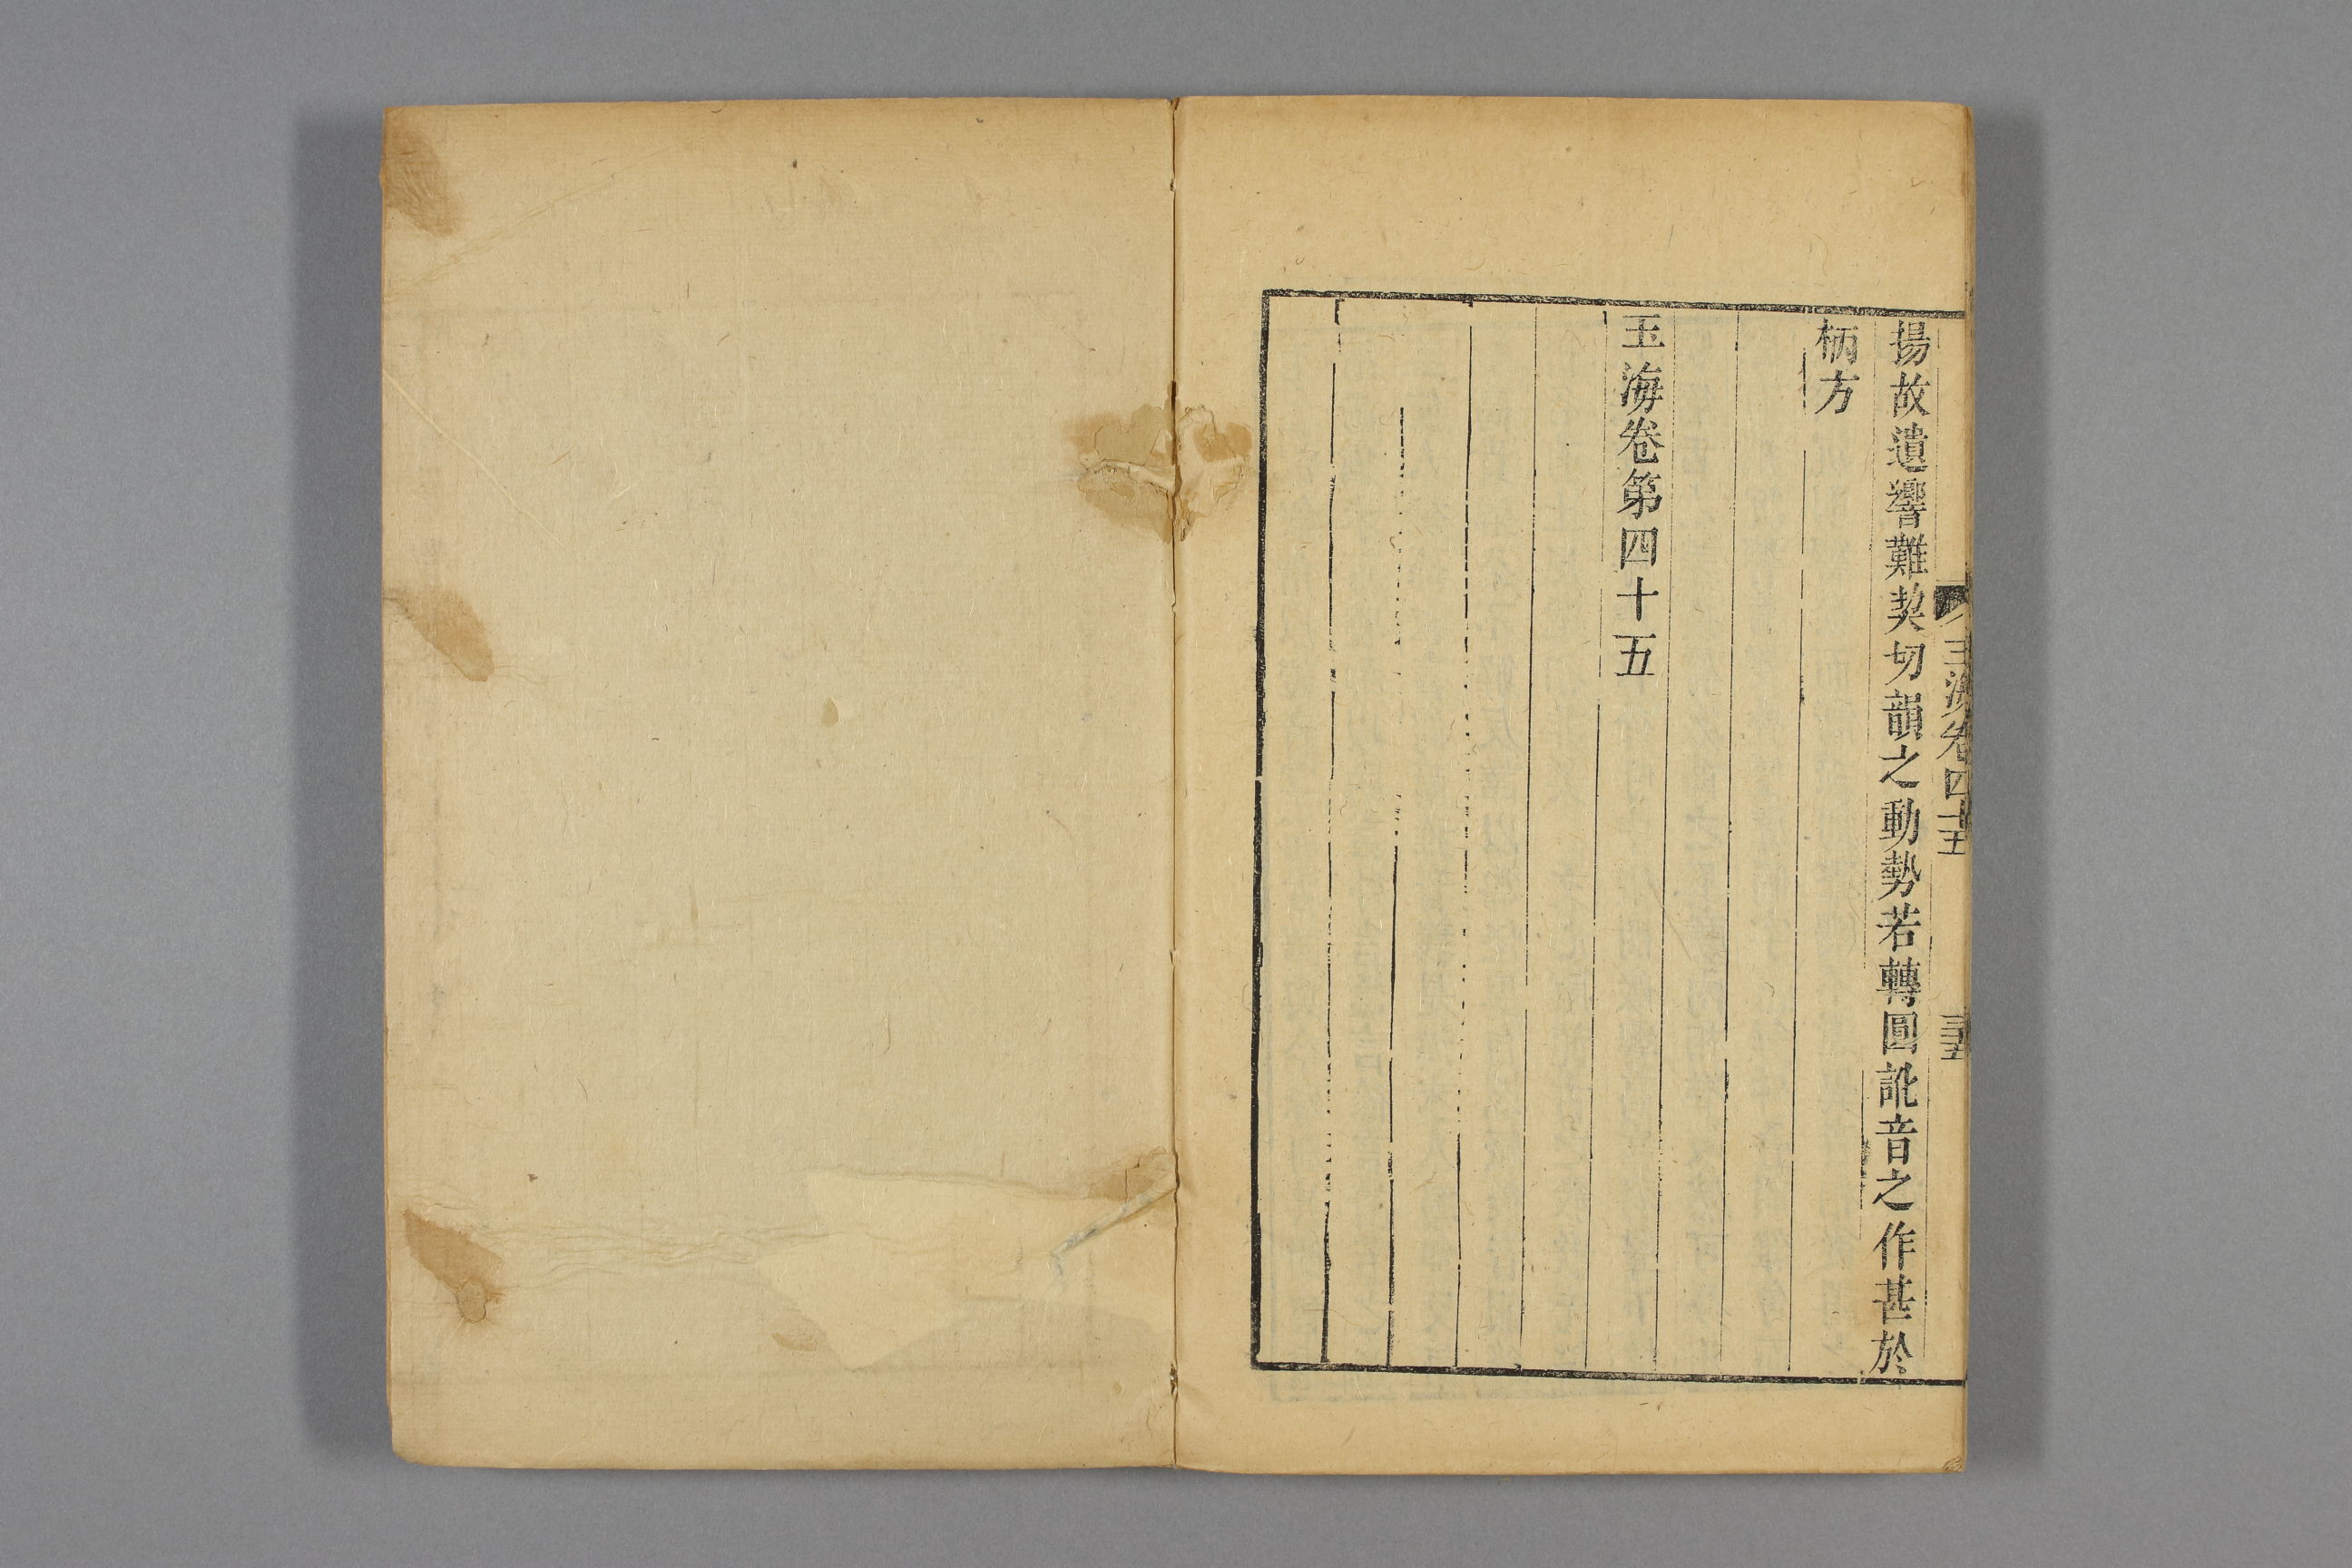 揚故遺響難契切韻之動勢若轉圓訛音之作甚於
柄方
玉海卷第四十五
玉海卷四十五
三十五